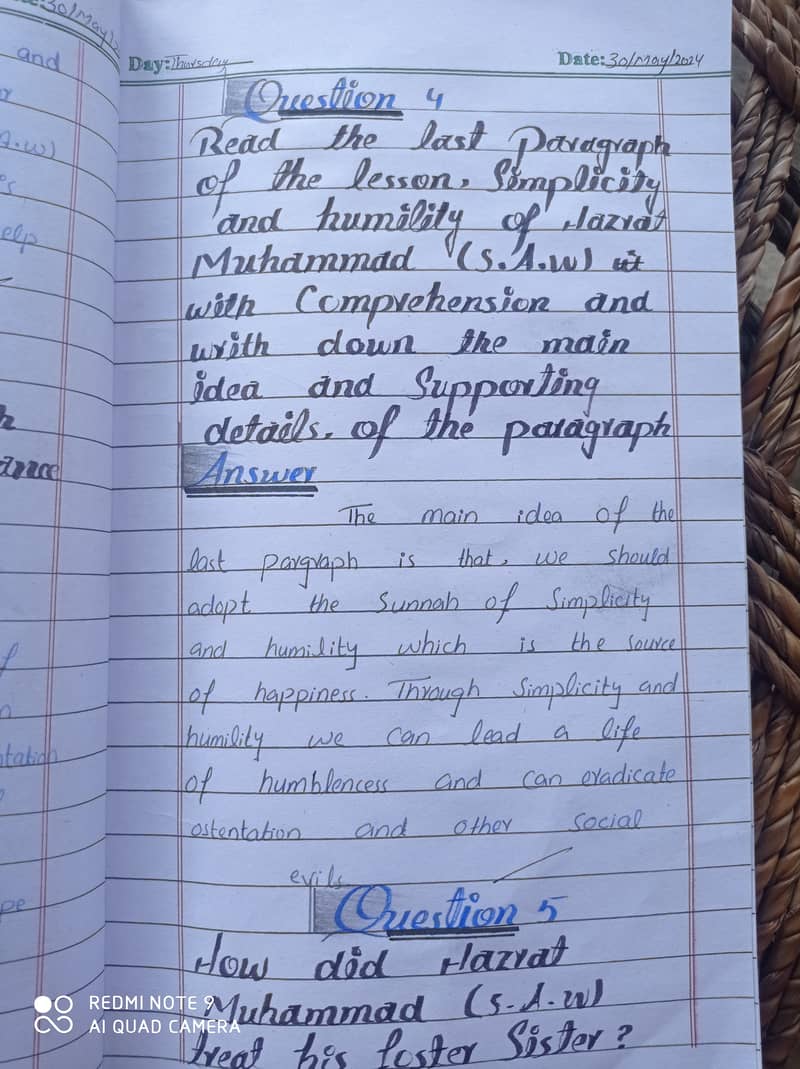 30/May/2
and
A.w)
elp
Day: Thursday Date: 30/May/2024
Question 4
Read the last Paragraph
of the lesson, Simplicity
and humility of Hazrat
Muhammad (S.A.W)
with Comprehension and
writh down the main
idea and Supporting
details. of the paragraph
Answer
The main idea of the
last pargraph is that, we should
adopt the Sunnah of Simplicity
and humility which is the source
of happiness. Through Simplicity and
humility we can lead a life
of humblencess and can eradicate
ostentation and other social
evils
Question 5
How did Hazrat
Muhammad (S.A.W)
treat his foster Sister?
REDMI NOTE 9
AI QUAD CAMERA